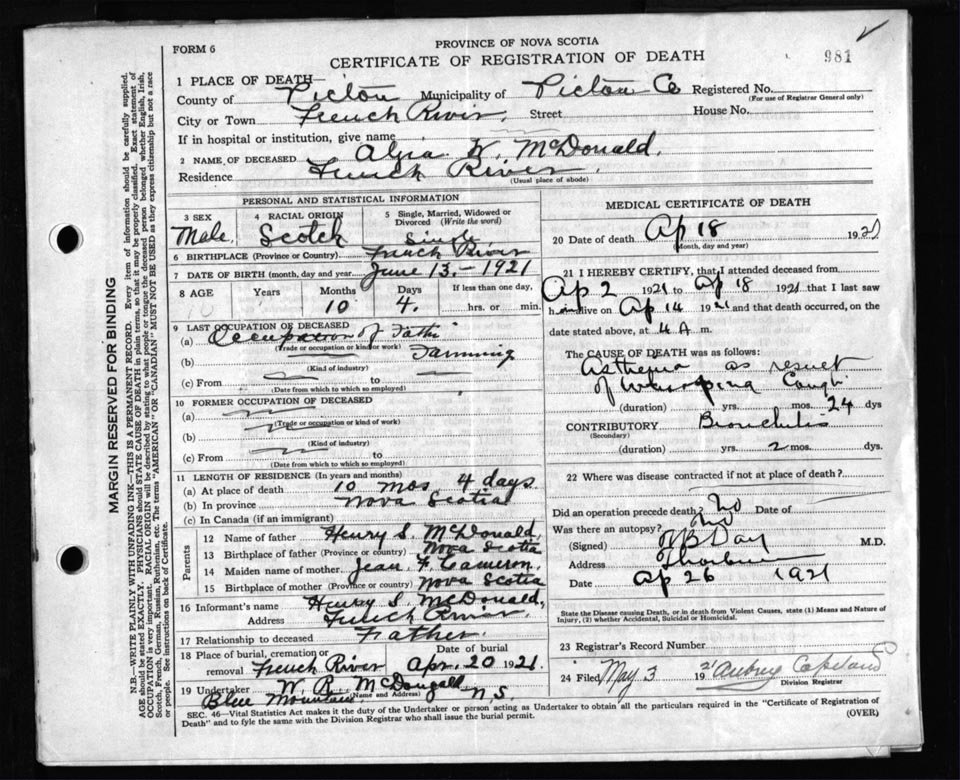 PROVINCE OF NOVA SCOTIA
FORM 6
CERTIFICATE OF REGISTRATION OF DEATH
981
1 PLACE OF DEATH—
County of Pictou Municipality of Pictou Co Registered No.
(For use of Registrar General only)
City or Town French River Street House No.
If in hospital or institution, give name
2 NAME OF DECEASED W. McDonald.
Residence French River.
(Usual place of abode)
PERSONAL AND STATISTICAL INFORMATION
3 SEX
Male.
4 RACIAL ORIGIN
Scotch
5 Single, Married, Widowed or
Divorced (Write the word)
Single
6 BIRTHPLACE (Province or Country) French River
7 DATE OF BIRTH (month, day and year) June 13.-1921
8 AGE Years Months Days If less than one day,
10 10 4. hrs. or min.
9 LAST OCCUPATION OF DECEASED
(a) Occupation of Father
(Trade or occupation or kind of work)
(b) Farming
(Kind of industry)
(c) From to
(Date from which to which so employed)
10 FORMER OCCUPATION OF DECEASED
(a)
(Trade or occupation or kind of work)
(b)
(Kind of industry)
(c) From to
(Date from which to which so employed)
11 LENGTH OF RESIDENCE (In years and months)
(a) At place of death 10 mos 4 days
(b) In province Nova Scotia
(c) In Canada (if an immigrant)
Parents
12 Name of father Henry S. McDonald,
13 Birthplace of father (Province or country) Nova Scotia
14 Maiden name of mother Jean F. Cameron.
15 Birthplace of mother (Province or country) Nova Scotia
16 Informant's name Henry S. McDonald,
Address French River.
17 Relationship to deceased Father.
18 Place of burial, cremation or
removal French River
Date of burial
Apr. 20 1921.
19 Undertaker W. R. McDougall
(Name and Address)
Blue Mountain N.S.
MEDICAL CERTIFICATE OF DEATH
20 Date of death Ap 18 1921
(Month, day and year)
21 I HEREBY CERTIFY, that I attended deceased from
Ap 2 1921 to Ap 18 1921 that I last saw
h alive on Ap 14 1921 and that death occurred, on the
date stated above, at 4 A m.
The CAUSE OF DEATH was as follows:
Asthenia as result
of Whooping Cough
(duration) yrs. mos. 24 dys
CONTRIBUTORY Bronchitis
(Secondary)
(duration) yrs. 2 mos. dys.
22 Where was disease contracted if not at place of death?
Did an operation precede death? No
Was there an autopsy? No
(Signed) Day M.D.
Address Thorburn
Date Ap 26 1921
State the Disease causing Death, or in death from Violent Causes, state (1) Means and Nature of
Injury, (2) whether Accidental, Suicidal or Homicidal.
23 Registrar's Record Number
24 Filed May 3 1921 Aubrey Copeland
Division Registrar
SEC. 46—Vital Statistics Act makes it the duty of the Undertaker or person acting as Undertaker to obtain all the particulars required in the "Certificate of Registration of
Death" and to fyle the same with the Division Registrar who shall issue the burial permit. (OVER)
MARGIN RESERVED FOR BINDING
N.B.—WRITE PLAINLY WITH UNFADING INK—THIS IS A PERMANENT RECORD. Every item of information should be carefully supplied.
AGE should be stated EXACTLY. PHYSICIANS should STATE CAUSE OF DEATH in plain terms, so that it may be properly classified. Exact statement of
OCCUPATION is very important. RACIAL ORIGIN will be described by stating to what people or tongue the deceased person belonged whether English, Irish,
Scotch, French, German, Russian, Ruthenian, etc. The terms "AMERICAN" OR "CANADIAN" MUST NOT BE USED as they express citizenship but not a race
or people. See instructions on back of Certificate.